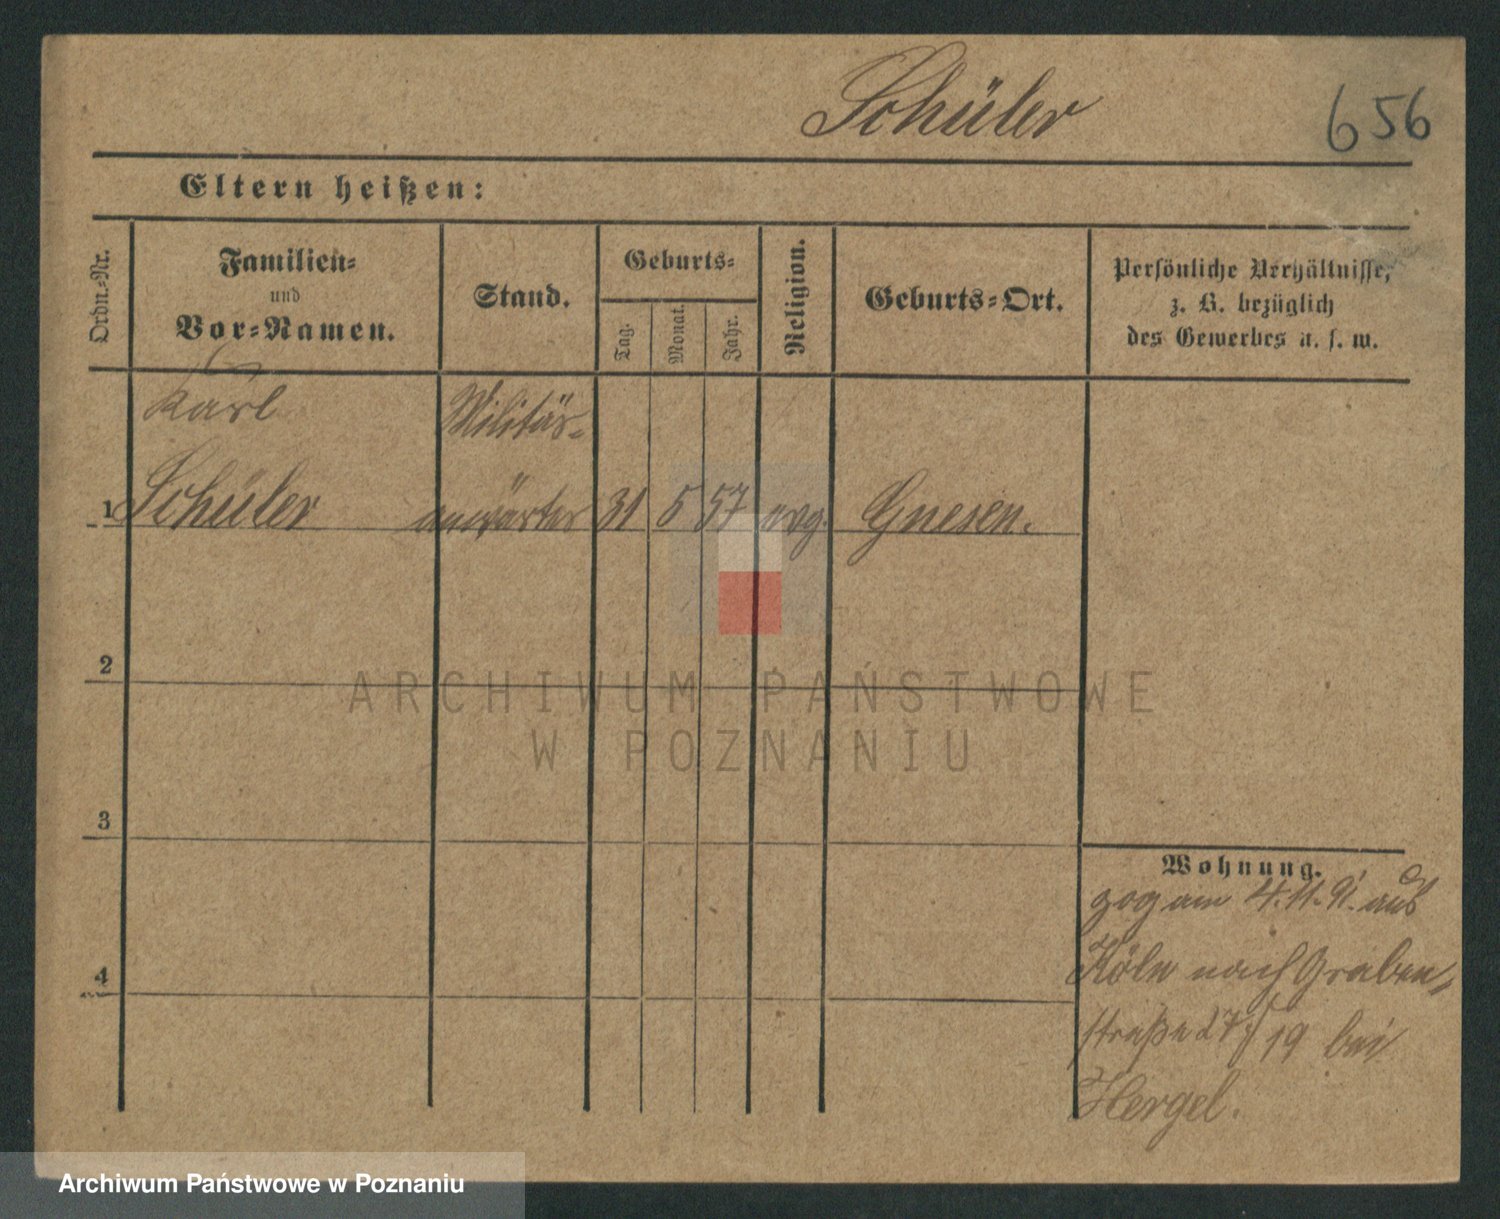 Schüler
656
Eltern heißen:
Ordn.-Nr.
Familien-
und
Vor-Namen.
Stand.
Geburts-
Tag.
Monat.
Jahr.
Religion.
Geburts-Ort.
Persönliche Verhältnisse,
z. B. bezüglich
des Gewerbes u. s. w.
Karl
Militär-
1 Schüler anwärter 31 5 57 evg. Gnesen.
2
ARCHIWUM PAŃSTWOWE
W POZNANIU
3
Wohnung.
zog am 4. 11. 91. aus
4
Köln nach Graben-
straße 27/19 bei
Hergel.
Archiwum Państwowe w Poznaniu